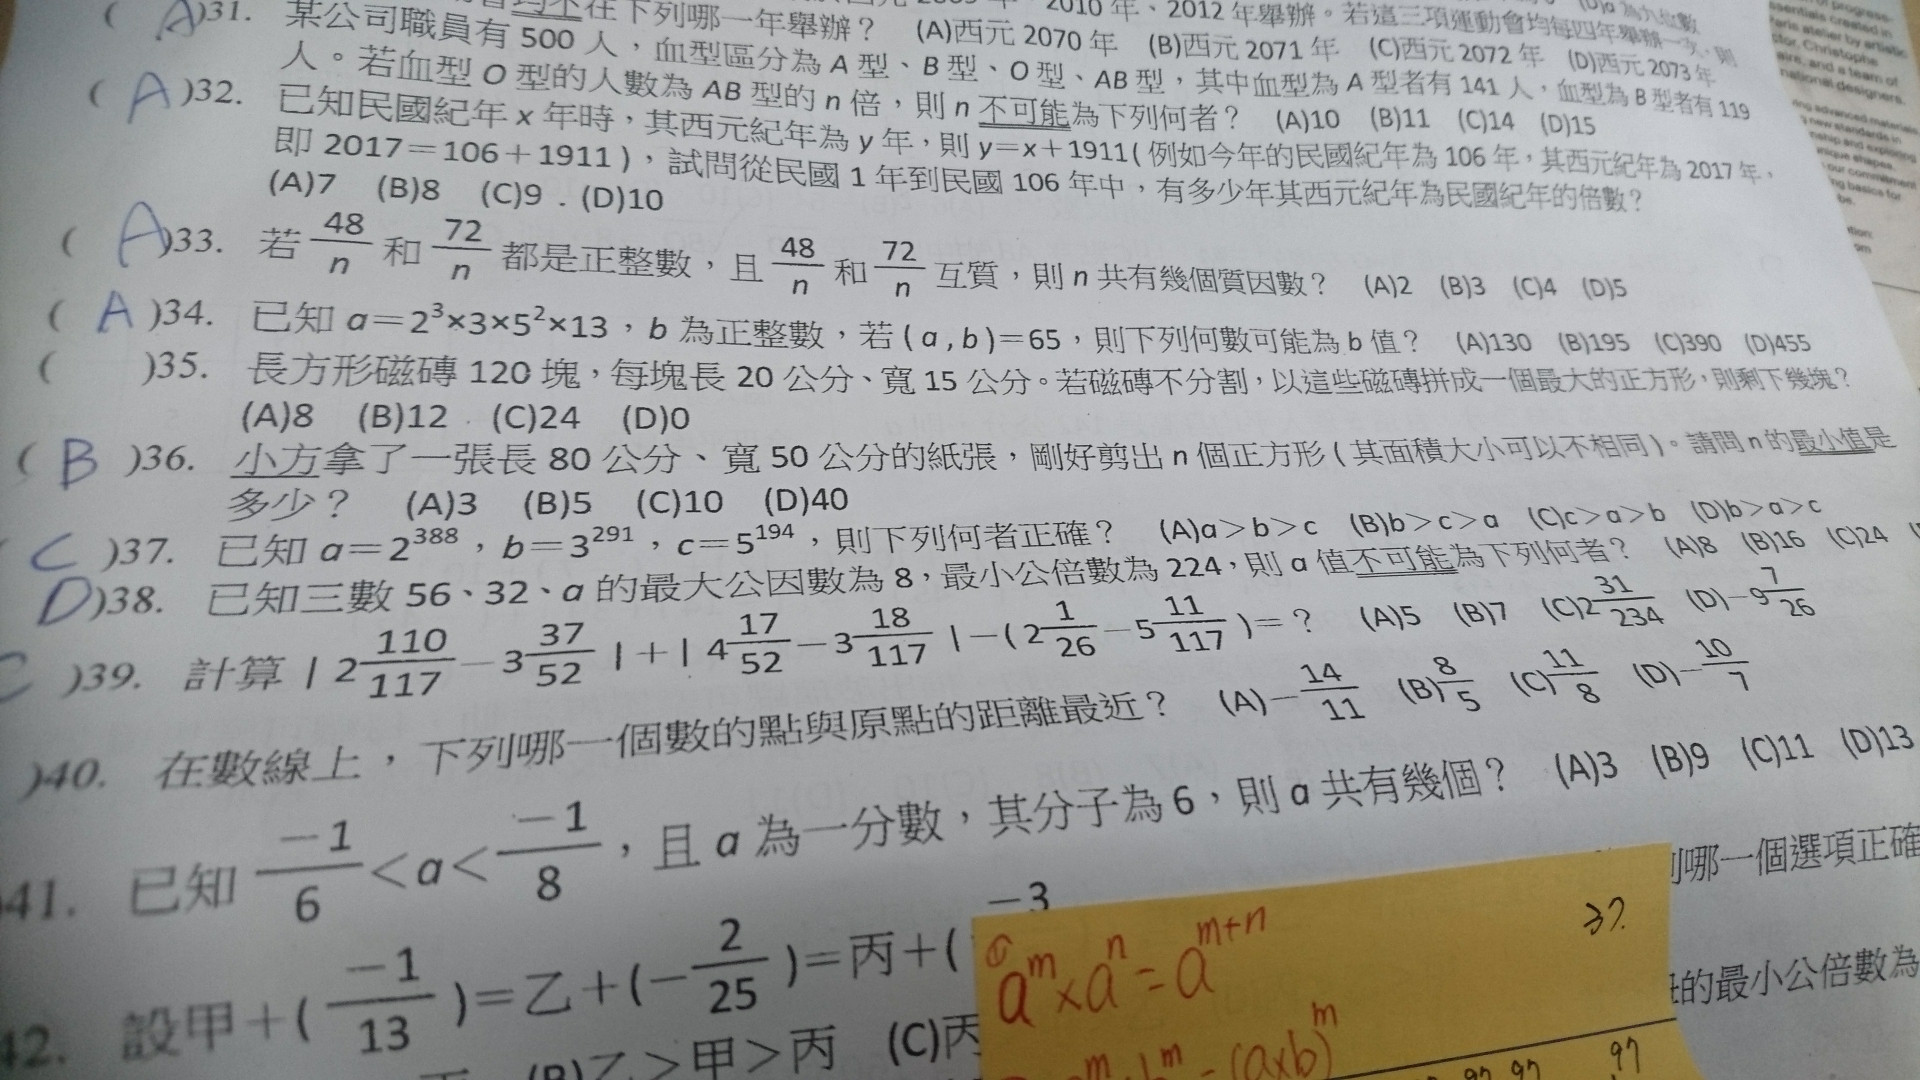 2010 年、2012 年舉辦。若這三項運動會均每四年舉辦一次,則
在下列哪一年舉辦? (A)西元 2070 年 (B)西元 2071 年 (C)西元 2072 年 (D)西元 2073 年
( A )31. 某公司職員有 500 人,血型區分為 A 型、B 型、O 型、AB 型,其中血型為 A 型者有 141 人,血型為 B 型者有 119
人。若血型 O 型的人數為 AB 型的 n 倍,則 n 不可能為下列何者? (A)10 (B)11 (C)14 (D)15
( A )32. 已知民國紀年 x 年時,其西元紀年為 y 年,則 y=x+1911(例如今年的民國紀年為 106 年,其西元紀年為 2017 年,
即 2017=106+1911),試問從民國 1 年到民國 106 年中,有多少年其西元紀年為民國紀年的倍數?
(A)7 (B)8 (C)9 . (D)10
( A )33. 若 48/n 和 72/n 都是正整數,且 48/n 和 72/n 互質,則 n 共有幾個質因數? (A)2 (B)3 (C)4 (D)5
( A )34. 已知 a=2³×3×5²×13,b 為正整數,若 (a,b)=65,則下列何數可能為 b 值? (A)130 (B)195 (C)390 (D)455
( )35. 長方形磁磚 120 塊,每塊長 20 公分、寬 15 公分。若磁磚不分割,以這些磁磚拼成一個最大的正方形,則剩下幾塊?
(A)8 (B)12 (C)24 (D)0
( B )36. 小方拿了一張長 80 公分、寬 50 公分的紙張,剛好剪出 n 個正方形(其面積大小可以不相同)。請問 n 的最小值是
多少? (A)3 (B)5 (C)10 (D)40
C )37. 已知 a=2³⁸⁸,b=3²⁹¹,c=5¹⁹⁴,則下列何者正確? (A)a>b>c (B)b>c>a (C)c>a>b (D)b>a>c
D )38. 已知三數 56、32、a 的最大公因數為 8,最小公倍數為 224,則 a 值不可能為下列何者? (A)8 (B)16 (C)24
)39. 計算 | 2 110/117 - 3 37/52 | + | 4 17/52 - 3 18/117 | - ( 2 1/26 - 5 11/117 ) = ? (A)5 (B)7 (C)2 31/234 (D)-9 7/26
)40. 在數線上,下列哪一個數的點與原點的距離最近? (A)-14/11 (B)8/5 (C)11/8 (D)-10/7
41. 已知 -1/6 < a < -1/8,且 a 為一分數,其分子為 6,則 a 共有幾個? (A)3 (B)9 (C)11 (D)13
42. 設甲+(-1/13)=乙+(-2/25)=丙+( -3
列哪一個選項正確
(B)乙>甲>丙 (C)丙
的最小公倍數為
37.
① aᵐ×aⁿ=aᵐ⁺ⁿ
(a×b)ᵐ
97 97 97